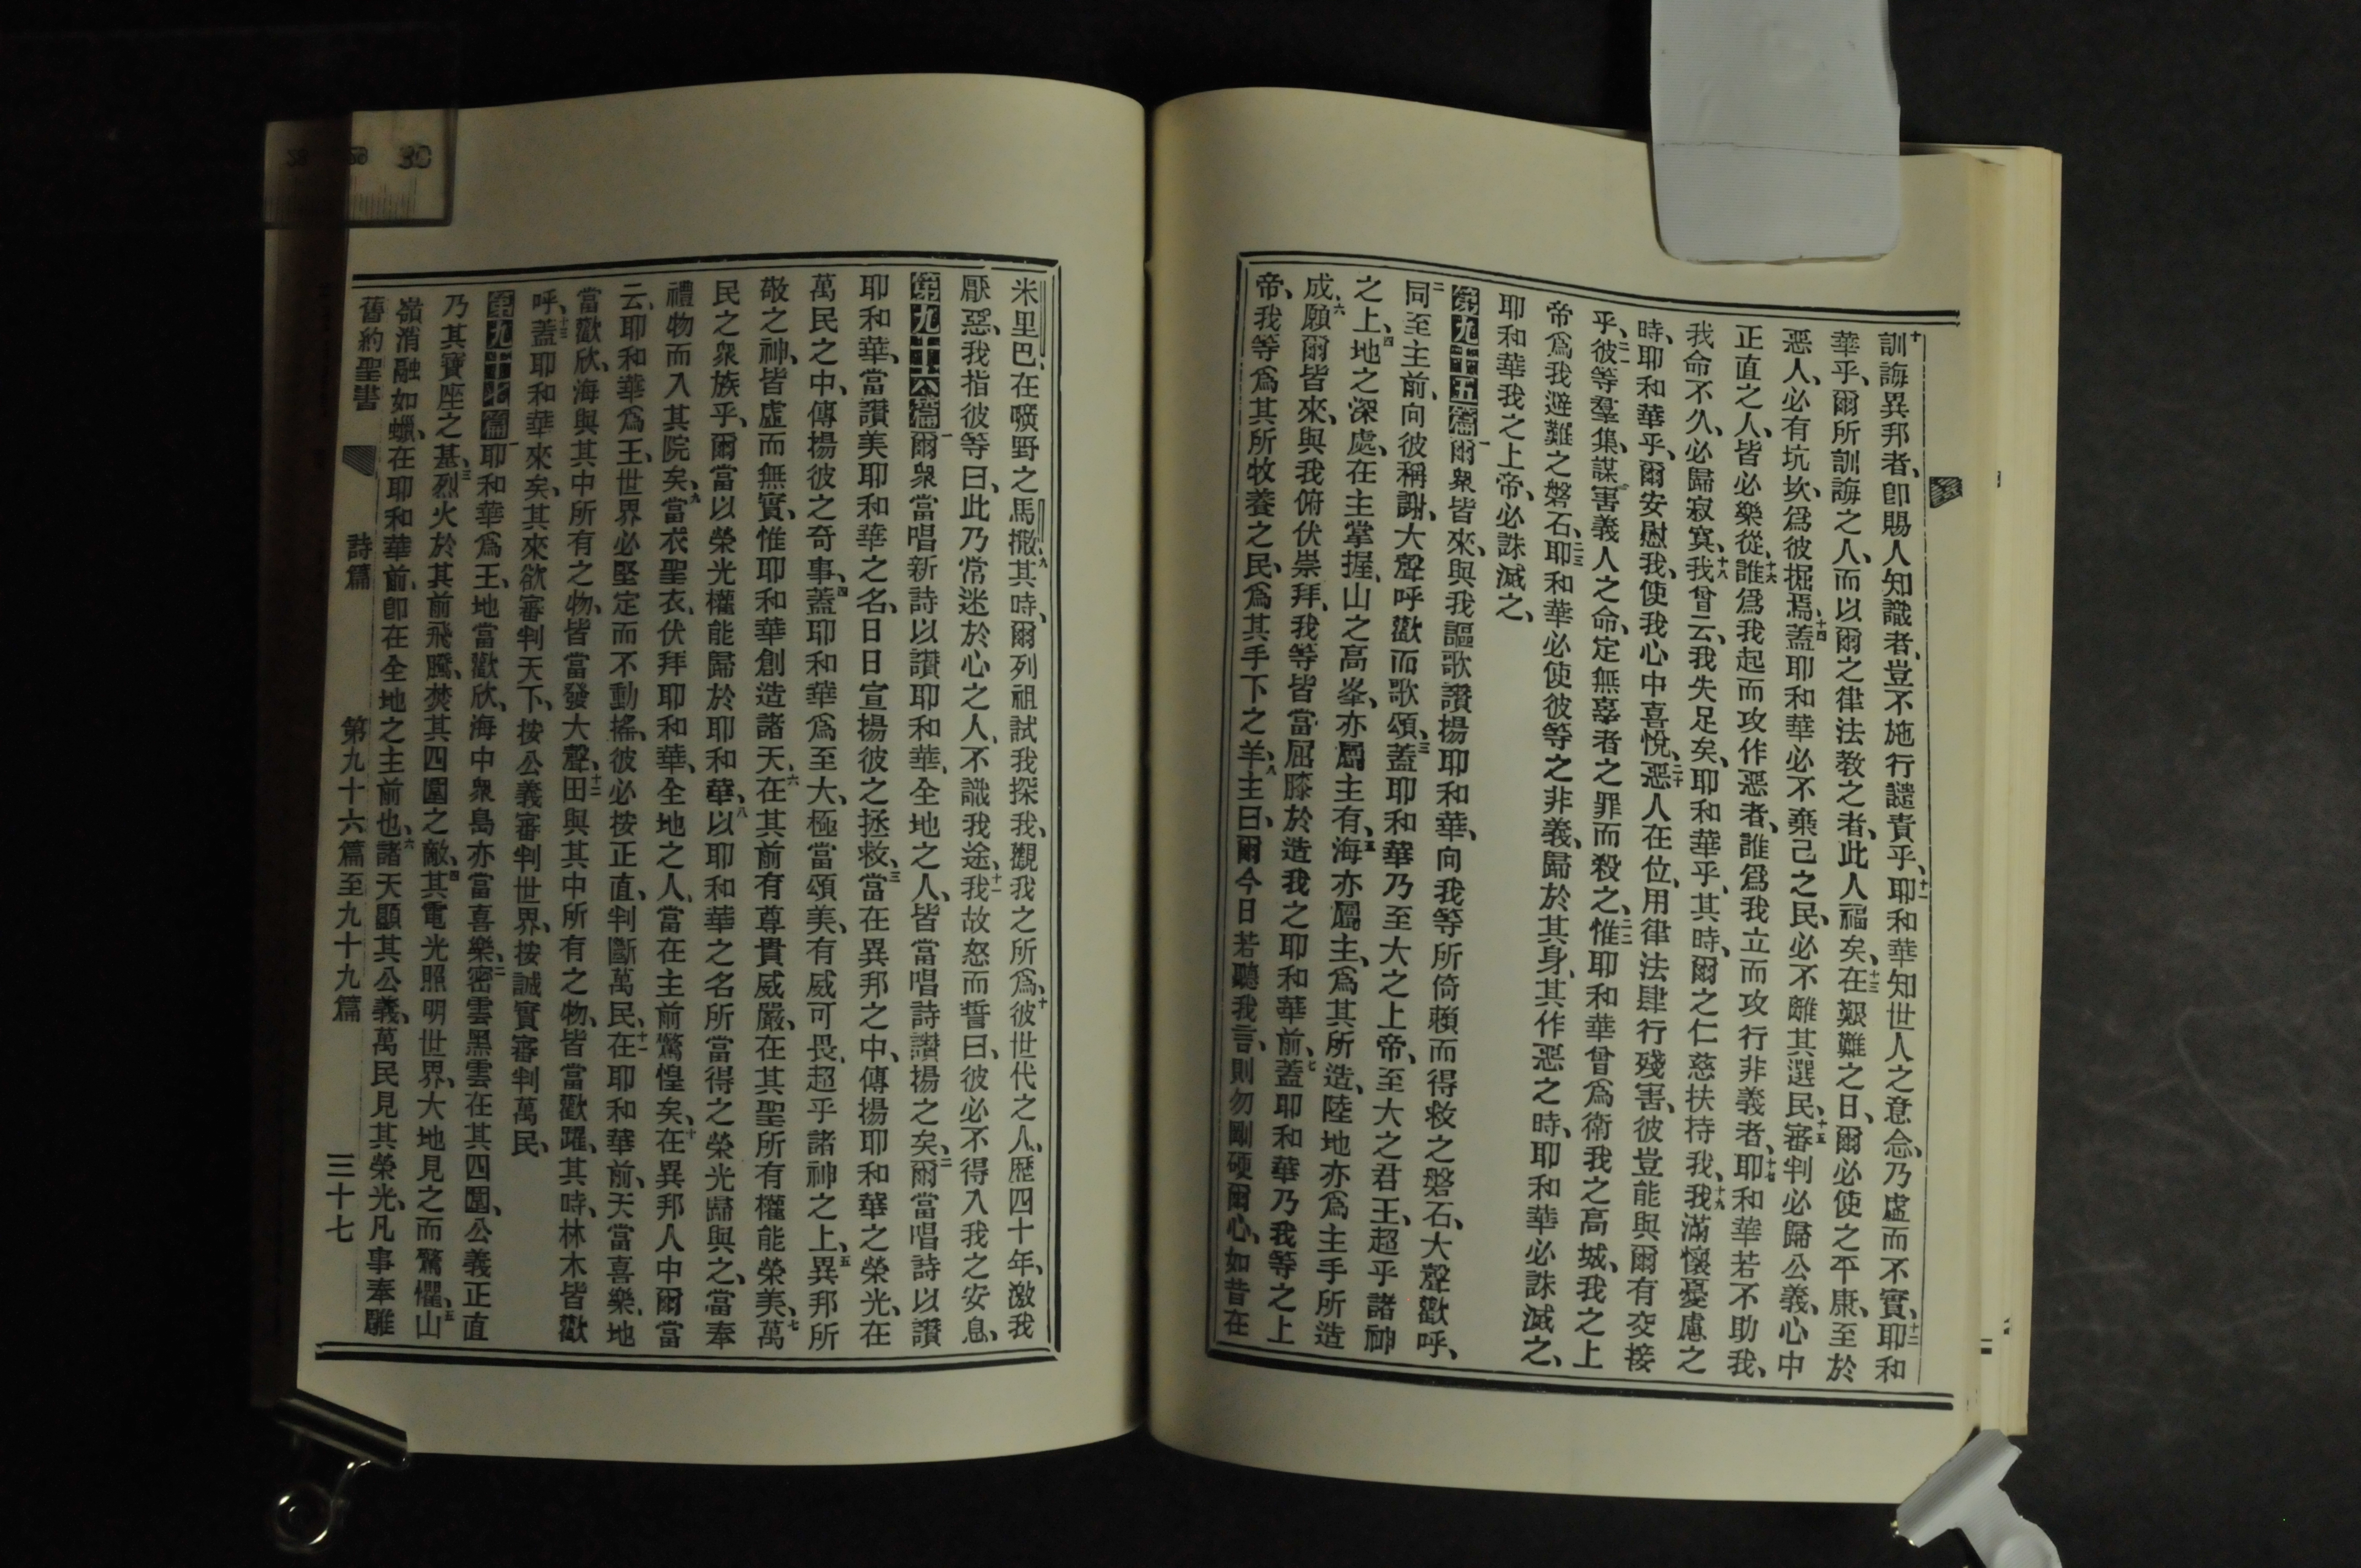 十訓誨異邦者、卽賜人知識者、豈不施行譴責乎、十一耶和華知世人之意念、乃虛而不實、十二耶和
華乎、爾所訓誨之人、而以爾之律法教之者、此人福矣、十三在艱難之日、爾必使之平康、至於
惡人、必有坑坎、爲彼掘焉、十四蓋耶和華必不棄己之民、必不離其選民、十五審判必歸公義、心中
正直之人、皆必樂從、十六誰爲我起而攻作惡者、誰爲我立而攻行非義者、十七耶和華若不助我、
我命不久、必歸寂寞、十八我曾云、我失足矣、耶和華乎、其時、爾之仁慈扶持我、十九我滿懷憂慮之
時、耶和華乎、爾安慰我、使我心中喜悅、二十惡人在位、用律法肆行殘害、彼豈能與爾有交接
乎、二一彼等羣集、謀害義人之命、定無辜者之罪而殺之、二二惟耶和華曾爲衛我之高城、我之上
帝爲我避難之磐石、二三耶和華必使彼等之非義、歸於其身、其作惡之時、耶和華必誅滅之、
耶和華我之上帝、必誅滅之、
第九十五篇一爾衆皆來、與我謳歌讚揚耶和華、向我等所倚賴而得救之磐石、大聲歡呼、
二同至主前、向彼稱謝、大聲呼歡而歌頌、三蓋耶和華乃至大之上帝、至大之君王、超乎諸神
之上、四地之深處、在主掌握、山之高峯、亦屬主有、五海亦屬主、爲其所造、陸地亦爲主手所造
成、六願爾皆來、與我俯伏崇拜、我等皆當屈膝於造我之耶和華前、七蓋耶和華乃我等之上
帝、我等爲其所牧養之民、爲其手下之羊、八主曰、爾今日若聽我言、則勿剛硬爾心、如昔在
米里巴、在曠野之馬撒、九其時、爾列祖試我探我、觀我之所爲、十彼世代之人、歷四十年、激我
厭惡、我指彼等曰、此乃常迷於心之人、不識我途、十一我故怒而誓曰、彼必不得入我之安息、
第九十六篇一爾衆當唱新詩以讚耶和華、全地之人、皆當唱詩讚揚之矣、二爾當唱詩以讚
耶和華、當讚美耶和華之名、日日宣揚彼之拯救、三當在異邦之中、傳揚耶和華之榮光、在
萬民之中、傳揚彼之奇事、四蓋耶和華爲至大、極當頌美、有威可畏、超乎諸神之上、五異邦所
敬之神、皆虛而無實、惟耶和華創造諸天、六在其前有尊貴威嚴、在其聖所有權能榮美、七萬
民之衆族乎、爾當以榮光權能歸於耶和華、八以耶和華之名所當得之榮光歸與之、當奉
禮物而入其院矣、九當衣聖衣、伏拜耶和華、全地之人、當在主前驚惶矣、十在異邦人中爾當
云、耶和華爲王、世界必堅定而不動搖、彼必按正直、判斷萬民、十一在耶和華前、天當喜樂、地
當歡欣、海與其中所有之物、皆當發大聲、十二田與其中所有之物、皆當歡躍、其時、林木皆歡
呼、十三蓋耶和華來矣、其來欲審判天下、按公義審判世界、按誠實審判萬民、
第九十七篇一耶和華爲王、地當歡欣、海中衆島亦當喜樂、二密雲黑雲在其四圍、公義正直
乃其寶座之基、三烈火於其前飛騰、焚其四圍之敵、四其電光照明世界、大地見之而驚懼、五山
嶺消融如蠟、在耶和華前、卽在全地之主前也、六諸天顯其公義、萬民見其榮光、凡事奉雕
舊約聖書 詩篇 第九十六篇至九十九篇 三十七
28 29 30